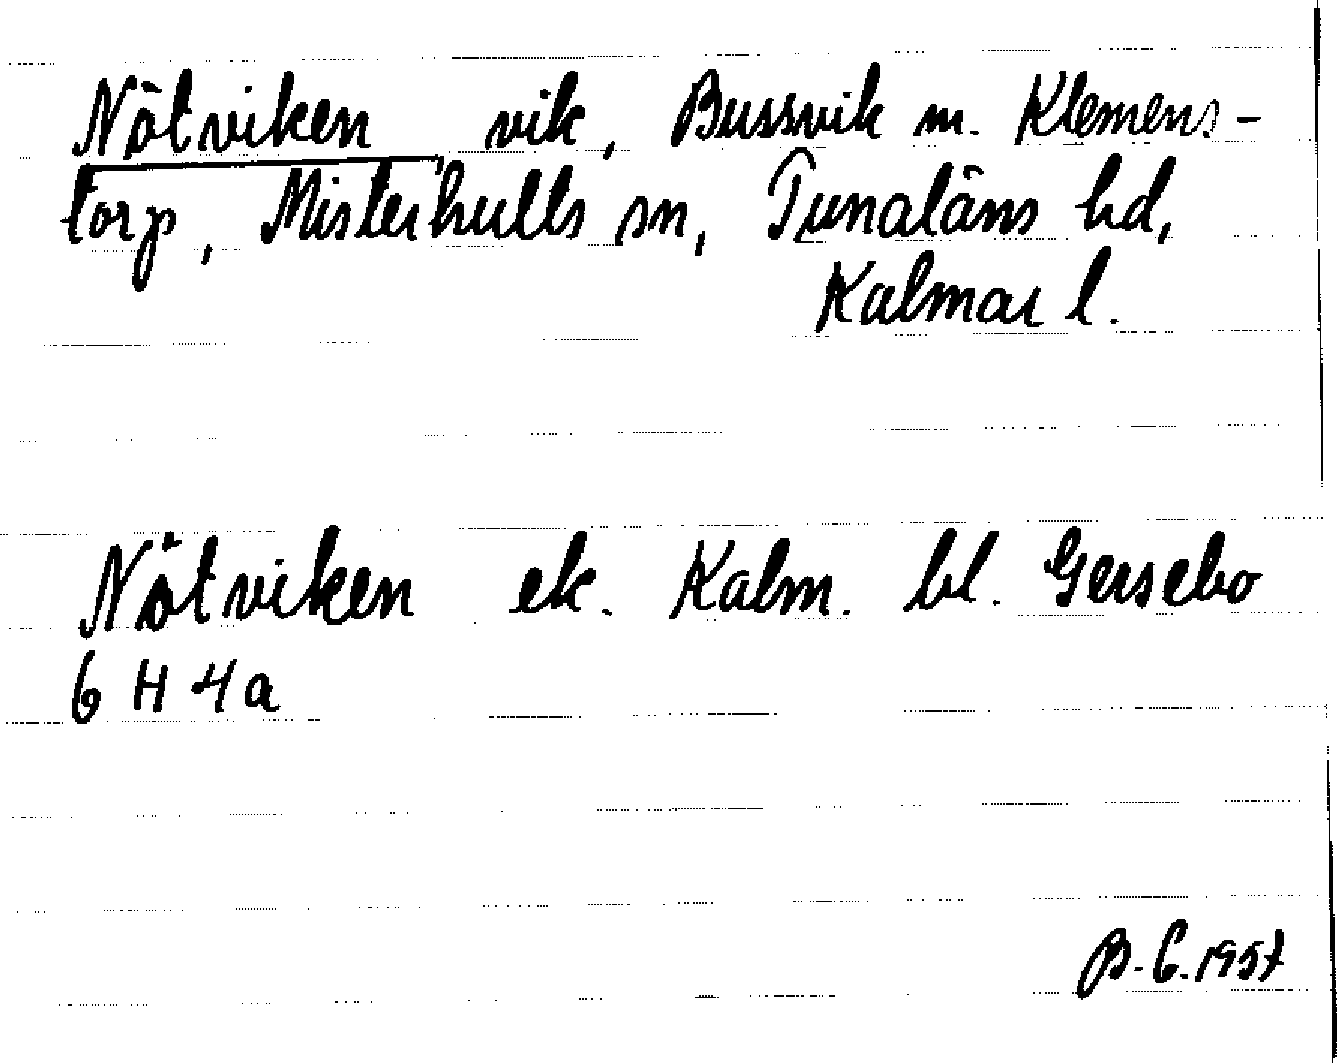 Nötviken vik, Bussvik m. Klemens-
torp, Misterhults sn, Tunaläns hd,
Kalmar l.
Nötviken ek. Kalm. bl. Gersebo
6 H 4a
B.C. 1957